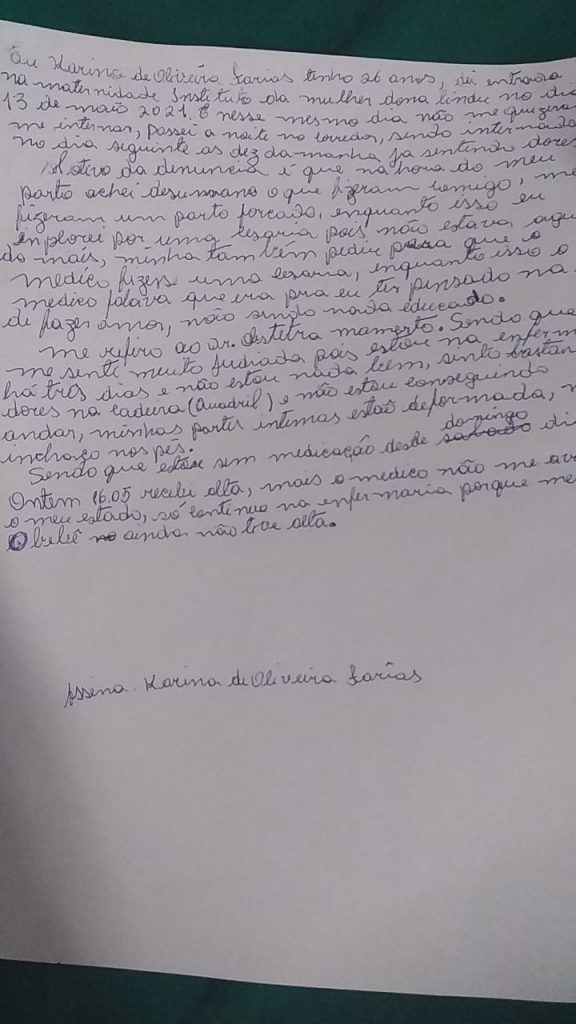 Eu Karina de Oliveira Farias tenho 26 anos, dei entrada
na maternidade Instituto da mulher dona lindu no dia
13 de maio 2021. E nesse mesmo dia não me quizeram
me internar, passei a noite no corredor, sendo internada
no dia seguinte as dez da manhã já sentindo dores
Motivo da denuncia é que na hora do meu
parto achei desumano o que fizeram comigo, me
fizeram um parto forçado, enquanto isso eu
enplorei por uma cesaria pois não estava aguen
do mais, minha também pediu para que o
medico fizesse uma cesaria, enquanto isso o
medico falava que era pra eu ter pensado na
de fazer amor, não sendo nada educado.
me refiro ao dr. obstetra momento. Sendo que
me senti muito pois estou na enferm
há três dias e não estou nada bem, sinto bastan
dores na cadeira (Quadril) e não estou conseguindo
andar, minhas partes intimas estão deformada,
inchaço nos pés.
Sendo que estou sem medicação desde domingo di
Ontem 16.05 recebi alta, mais o medico não me ava
o meu estado, só continuo na enfermaria porque me
O bebê ainda não teve alta.
Assina. Karina de Oliveira Farias